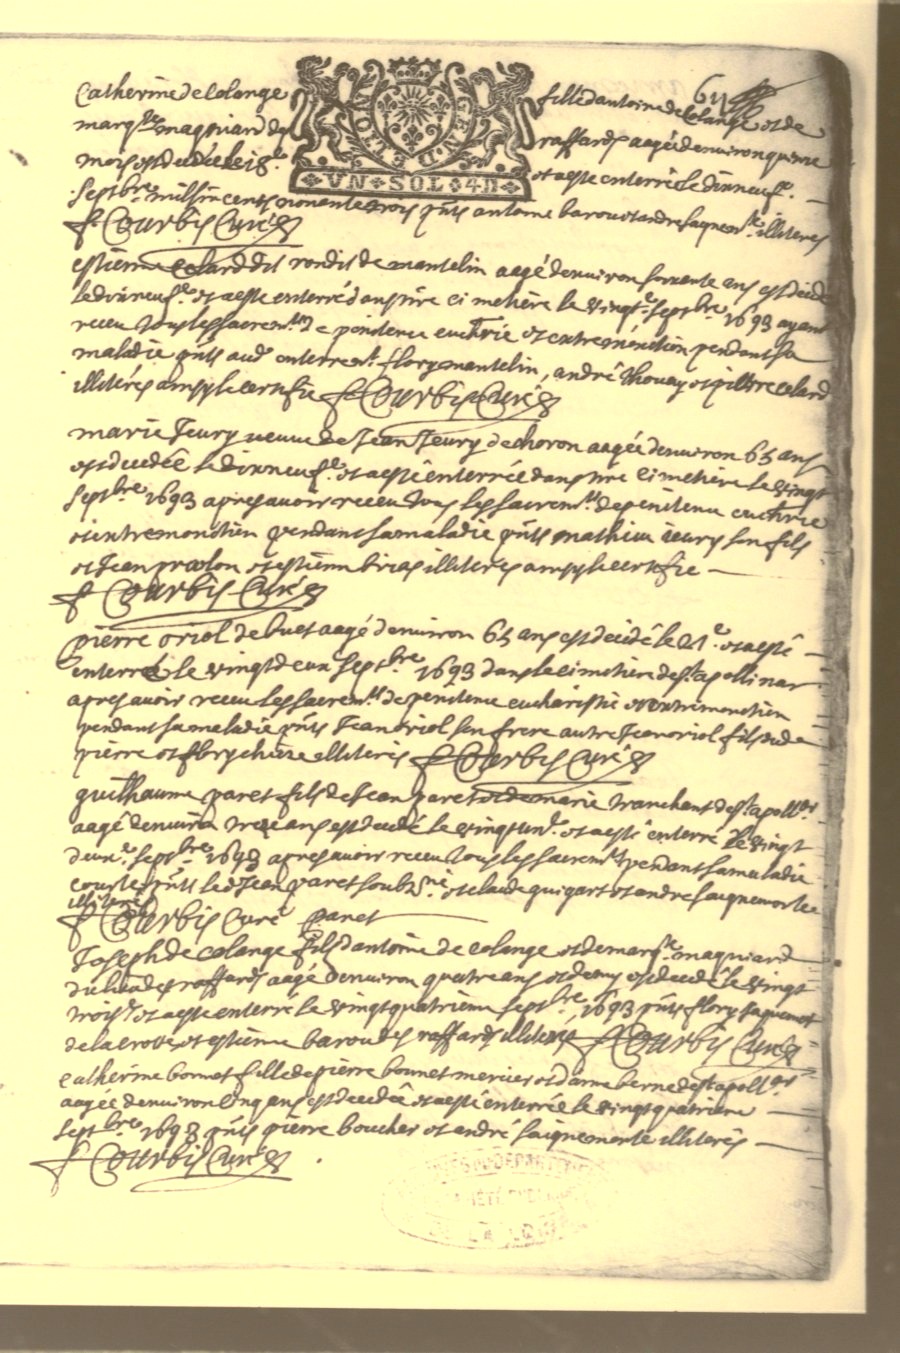 Catherine de Colange fille d antoine de Colange et de
marq.te maquiard de raffard aagée d environ quinze
mois est decedée le 18.e et a esté enterrée le dixneuf.e
GEN. D. ETLION
UN SOL 4 D
Septbre mil six cents nonante trois pñts antoine barou et andre saignemte illiteres
Courbis Curé
estienne Celard dit rondit de mantelin aagé d environ soixante ans est decedé
le dixneuf.e et a esté enterré dans n̄re cimetière le vingt.e septbre 1693 ayant
receu tous les sacremts de penitence euchrie et extremonction pendant sa
maladie pñts aud. enterremt. flory mantelin, andré thouay et pierre celard
illiterés ainsy le certifie Courbis Curé
marie Jeury veuve de Jean Jeury de choron aagée d environ 65 ans
est decedée le dixneuf.e et a esté enterrée dans n̄re cimetière le vingt
septbre 1693 apres avoir receu tous les sacremts de penitence euchrie
et extremonction pendant sa maladie pñts mathieu ieury son fils
et Jean et estienne brias illiterés ainsy le certifie
Courbis Curé
pierre oriol de buet aagé d environ 65 ans est décédé le 21.e et a esté
enterré le vingtdeux septbre 1693 dans le cimetière de st apollinar
apres avoir receu les sacremts de penitence eucharistie et extremonction
pendant sa maladie pñts Jean oriol son frere autre Jean oriol fils dud.
pierre et flory illiterés Courbis Curé
guilhaume paret fils de Jean paret et de marie tranchant de st apoll.ar
aagé d environ treize ans est decedé le vingtun.e et a esté enterré le vingt
deux.e septbre 1693 apres avoir receu tous les sacremts pendant sa maladie
courte pñts led. Jean paret soubz.né et claude guigart et andre saignemorte
illiterés
Courbis Curé paret
Joseph de Colange fils d antoine de Colange et de marq.te maquiard
du lieu des raffards aagé d environ quatre ans et demy est decedé le vingt
trois.e et a esté enterré le vingtquatrieme septbre, 1693 pñts flory saignemorte
de la et estienne barou des raffards illiterés Courbis Curé
Catherine bonnet fille de pierre bonnet mercier et d anne berne de st apoll.ar
aagée d environ cinq ans est decedée et a esté enterrée le vingtquatrieme
septbre 1693 pñts pierre boucher et andré saignemorte illiterés
Courbis Curé
DEPARTEM
DE LA LOIRE